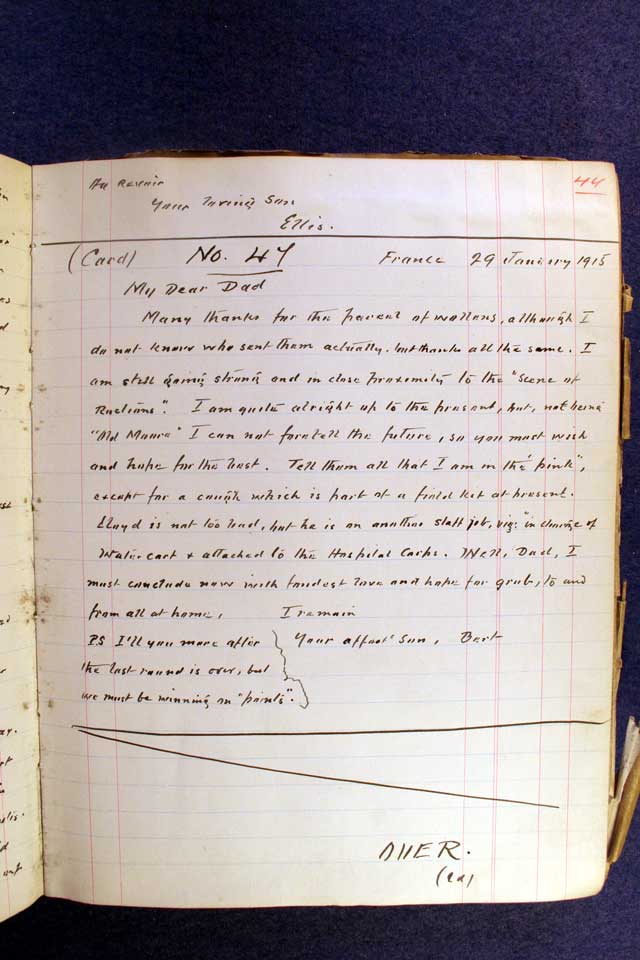 44
Au Revoir
Your loving Son
Ellis.
(Card) No. 47 France 29 January 1915
My Dear Dad
Many thanks for the parcel of woollens, although I
do not know who sent them actually. but thanks all the same. I
am still going strong and in close proximity to the "scene of
." I am quite alright up to the present, but, not being
"Old Moore" I can not foretell the future, so you must wish
and hope for the best. Tell them all that I am in the "pink",
except for a cough which is part of a field kit at present.
Lloyd is not too bad, but he is on another staff job, viz:- "in charge of
Water cart & attached to the Hospital Corps. Well, Dad, I
must conclude now with fondest love and hope for grub, to and
from all at home, I remain
PS I'll you more after Your affect' Son, Bert
the last round is over, but
we must be winning on "points".
OVER.